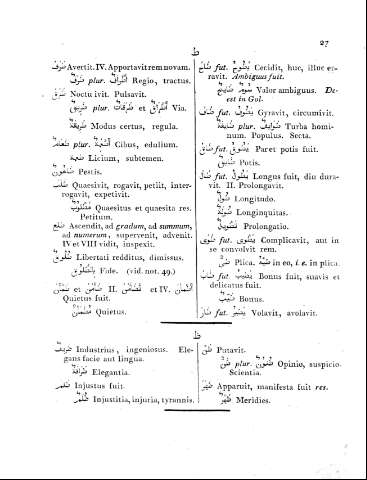 27
ط
طَرَفَ Avertit. IV. Apportavit rem novam.
طَرَفٌ plur. أَطْرَافٌ Regio, tractus.
طَرَقَ Noctu ivit. Pulsavit.
طَرِيقٌ plur. طُرُقَاتٌ et أَطْرَاقٌ Via.
طَرِيقَةٌ Modus certus, regula.
طَعَامٌ plur. أَطْعِمَةٌ Cibus, edulium.
طُعْمَةٌ Licium, subtemen.
طَاعُونٌ Pestis.
طَلَبَ Quaesivit, rogavit, periit, inter-
rogavit, expetivit.
مَطْلُوبٌ Quaesitus et quaesita res.
Petitum.
طَلَعَ Ascendit, ad gradum, ad summum,
ad numerum, supervenit, advenit.
IV et VIII vidit, inspexit.
طَلُوقٌ Libertati redditus, dimissus.
Fide. (vid. not. 49.)
et II. et IV.
Quietus fuit.
Quietus.
طَاحَ fut. يَطُوحُ Cecidit, huc, illuc er-
ravit. Ambiguus fuit.
Valor ambiguus. De-
est in Gol.
طَافَ fut. يَطُوفُ Gyravit, circumivit.
plur. طَوَايِفُ Turba homi-
num. Populus. Secta.
طَاقَ fut. يَطُوقُ Paret potis fuit.
Potis.
طَالَ fut. يَطُولُ Longus fuit, diu dura-
vit. II. Prolongavit.
طُولٌ Longitudo.
Longinquitas.
تَطْوِيلٌ Prolongatio.
طَوَى fut. يَطْوِي Complicavit, aut in
se convolvit rem.
طَيٌّ Plica. in eo, i. e. in plica.
طَابَ fut. يَطِيبُ Bonus fuit, suavis et
delicatus fuit.
طَيِّبٌ Bonus.
طَارَ fut. يَطِيرُ Volavit, avolavit.
ظ
ظَرِيفٌ Industrius, ingeniosus. Ele-
gans facie aut lingua.
ظَرَافَةٌ Elegantia.
ظَلَمَ Injustus fuit.
ظُلْمٌ Injustitia, injuria, tyrannis.
ظَنَّ Putavit.
ظَنٌّ plur. ظُنُونٌ Opinio, suspicio.
Scientia.
ظَهَرَ Apparuit, manifesta fuit res.
ظُهْرٌ Meridies.